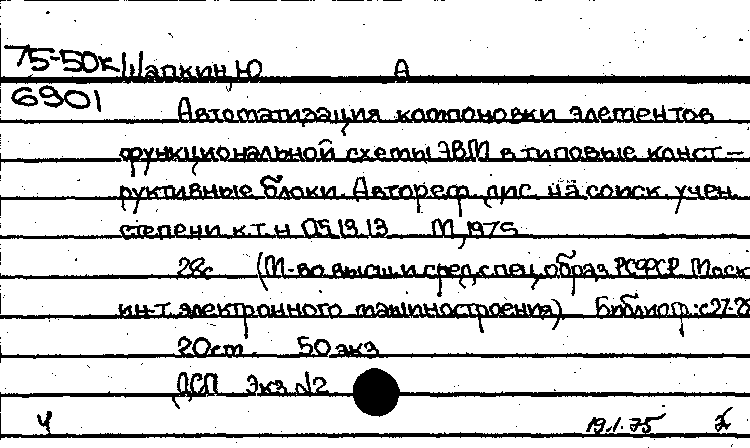 75-50к Шапкин, Ю А
6901
Автоматизация компоновки элементов
функциональной схемы ЭВМ в типовые конст-
руктивные блоки. Автореф дис на соиск учен
степени к.т.н 05.13.13 М, 1975
28с (М-во высш и сред. спец. образ РСФСР Моск
ин-т электронного машиностроения) Библиогр: с 27-28
20 ст. 50 экз
ДСП Экз N2
Ч 19.1.75